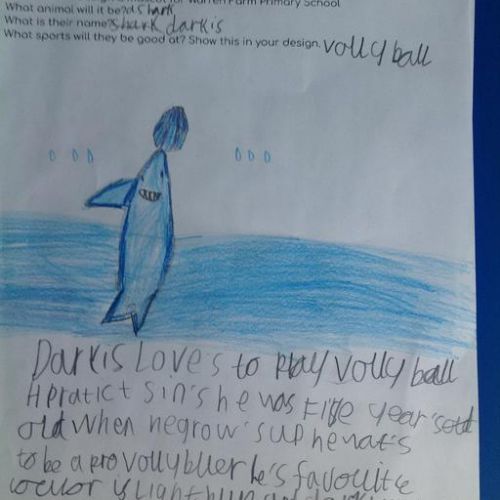 mascot for Warren Farm Primary School
What animal will it be? a shark
What is their name? shark darkis
What sports will they be good at? Show this in your design. volly ball
Darkis Loves to Play Volly ball
H pratict sin's he was Fife year's
old when negrow's up he wat's
to be a pro vollybller he's favouite